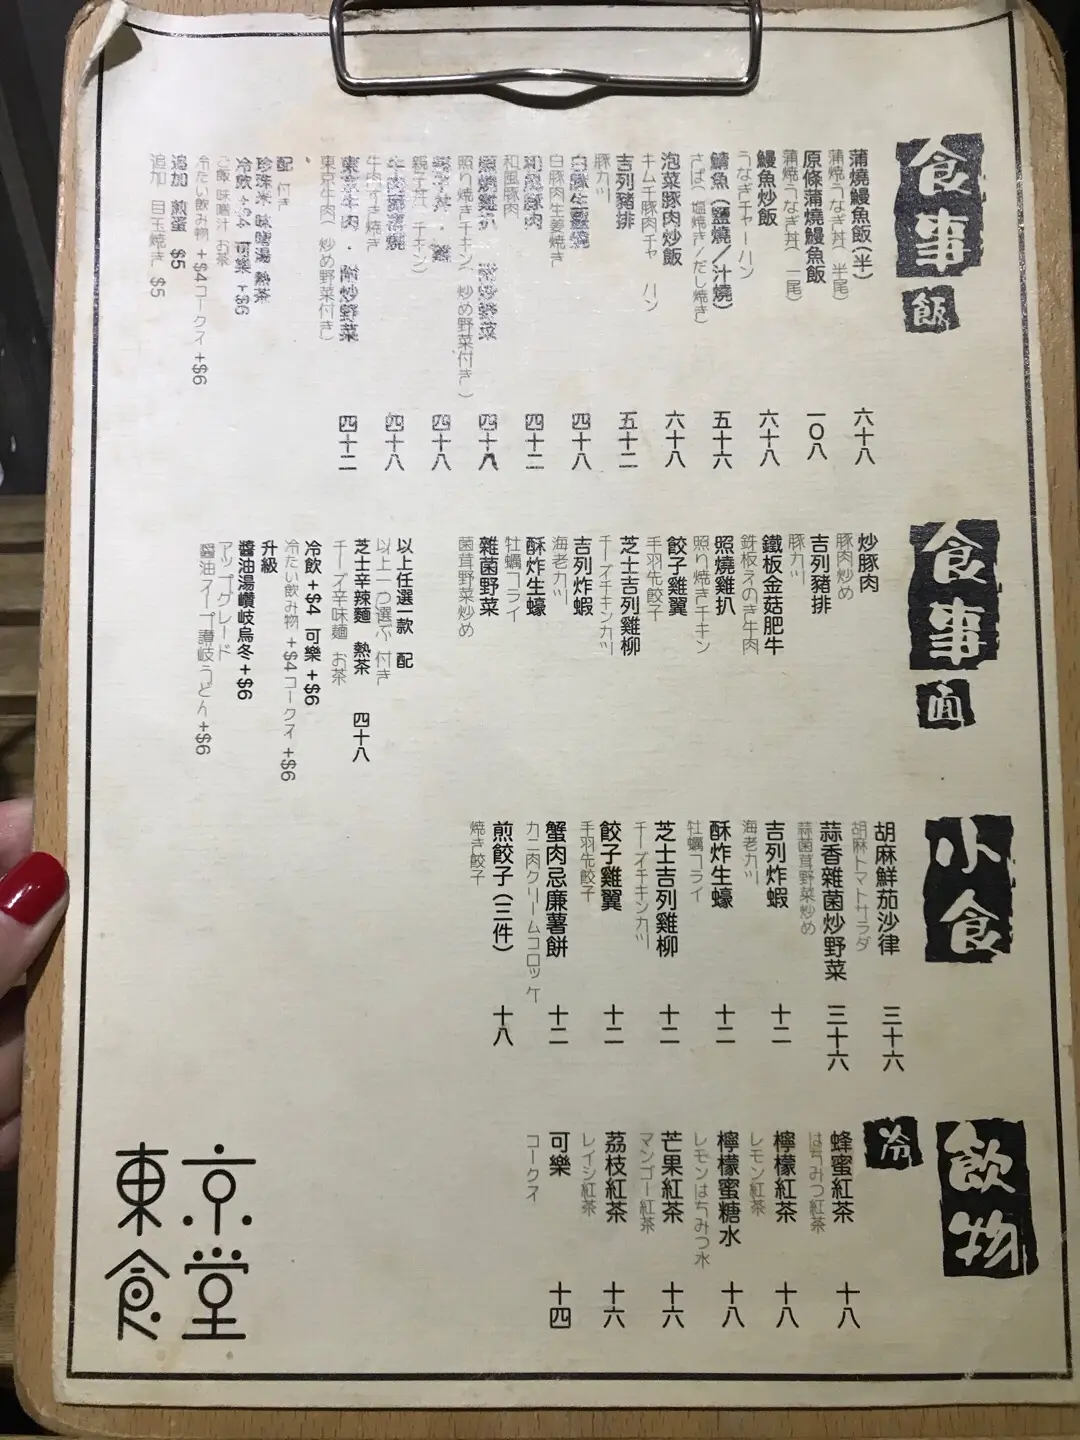 食事
飯
蒲燒鰻魚飯(半)
蒲焼うなぎ丼( 半尾)
六十八
原條蒲燒鰻魚飯
蒲焼うなぎ丼( 一尾)
一〇八
鰻魚炒飯
うなぎチャーハン
六十八
鯖魚(鹽燒/汁燒)
さば( 塩焼き/だし焼き)
五十六
泡菜豚肉炒飯
キムチ豚肉チャーハン
六十八
吉列豬排
豚カツ
五十二
白豚肉生姜焼き
四十八
和風豚肉
和風豚肉
四十二
照燒雞扒 · 蒜炒野菜
照り焼きチキン( 炒め野菜付き)
四十八
親子丼( チキン)
四十八
牛肉すき焼き
四十八
東京牛肉 · 蒜炒野菜
東京牛肉( 炒め野菜付き)
四十二
配 付き
珍珠米 味噌湯 熱茶
ご飯 味噌汁 お茶
冷飲 +$4 可樂 +$6
冷たい飲み物 +$4コークスイ +$6
追加 煎蛋 $5
追加 目玉焼き $5
食事
面
炒豚肉
豚肉炒め
吉列豬排
豚カツ
鐵板金菇肥牛
鉄板えのき牛肉
照燒雞扒
照り焼きチキン
餃子雞翼
手羽先餃子
芝士吉列雞柳
チーズチキンカツ
吉列炸蝦
海老カツ
酥炸生蠔
牡蠣フライ
雜菌野菜
菌茸野菜炒め
以上任選一款 配
以上一つ選ぶ 付き
芝士辛辣麵 熱茶 四十八
チーズ辛味麺 お茶
冷飲 +$4 可樂 +$6
冷たい飲み物 +$4コークスイ +$6
升級
醬油湯讚岐烏冬+$6
アップグレード
醤油スープ讃岐うどん+$6
小食
胡麻鮮茄沙律
胡麻トマトサラダ
三十六
蒜香雜菌炒野菜
蒜菌茸野菜炒め
三十六
吉列炸蝦
海老カツ
十二
酥炸生蠔
牡蠣フライ
十二
芝士吉列雞柳
チーズチキンカツ
十二
餃子雞翼
手羽先餃子
十二
蟹肉忌廉薯餅
カニ肉クリームコロッケ
十二
煎餃子(三件)
焼き餃子
十八
飲物
冷
蜂蜜紅茶
はちみつ紅茶
十八
檸檬紅茶
レモン紅茶
十八
檸檬蜜糖水
レモンはちみつ水
十八
芒果紅茶
マンゴー紅茶
十六
荔枝紅茶
レイシ紅茶
十六
可樂
コークスイ
十四
東京
食堂